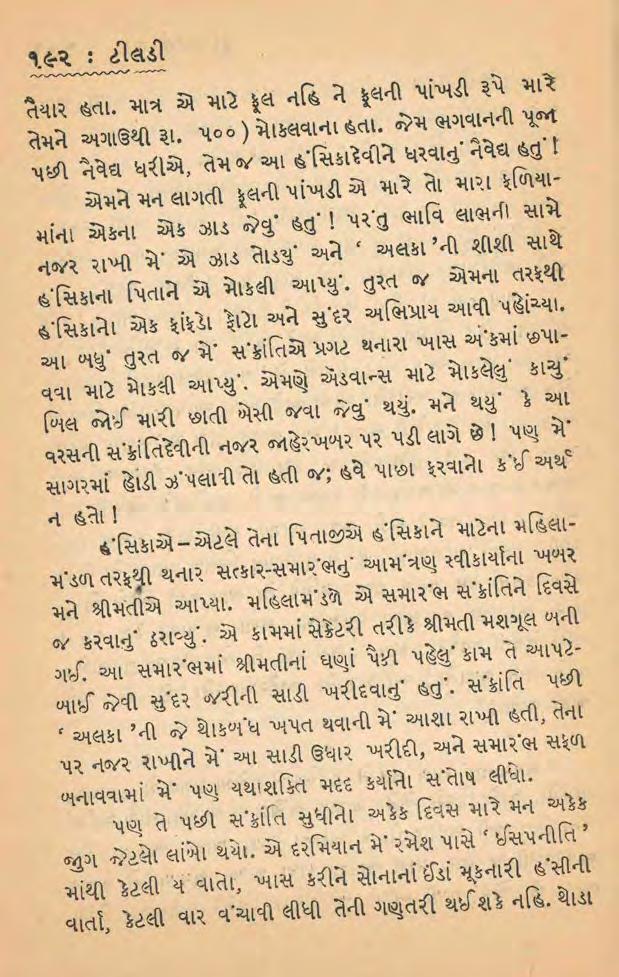 ૧૯૨ : ટીલડી
તૈયાર હતા. માત્ર એ માટે ફૂલ નહિ ને ફૂલની પાંખડી રૂપે મારે
તેમને અગાઉથી રૂા. ૫૦૦) મોકલવાના હતા. જેમ ભગવાનની પૂજા
પછી નૈવેદ્ય ધરીએ, તેમ જ આ હંસિકાદેવીને ધરવાનું નૈવેદ્ય હતું !
એમને મન લાગતી ફૂલની પાંખડી એ મારે તો મારા ફળિયા-
માંના એકના એક ઝાડ જેવું હતું ! પરંતુ ભાવિ લાભની સામે
નજર રાખી મેં એ ઝાડ તોડયું અને ‘ અલકા ’ની શીશી સાથે
હંસિકાના પિતાને એ મોકલી આપ્યું. તુરત જ એમના તરફથી
હંસિકાનો એક ફાંફડો ફોટો અને સુંદર અભિપ્રાય આવી પહોંચ્યા.
આ બધું તુરત જ મેં સંક્રાંતિએ પ્રગટ થનારા ખાસ અંકમાં છપા-
વવા માટે મોકલી આપ્યું. એમણે ઍડવાન્સ માટે મોકલેલું કાચું
બિલ જોઈ મારી છાતી બેસી જવા જેવું થયું. મને થયું કે આ
વરસની સંક્રાંતિદેવીની નજર જાહેરખબર પર પડી લાગે છે ! પણ મેં
સાગરમાં હોડી ઝંપલાવી તો હતી જ; હવે પાછા ફરવાનો કંઈ અર્થ
ન હતો !
હંસિકાએ – એટલે તેના પિતાજીએ હંસિકાને માટેના મહિલા-
મંડળ તરફથી થનાર સત્કાર-સમારંભનું આમંત્રણ સ્વીકાર્યાના ખબર
મને શ્રીમતીએ આપ્યા. મહિલામંડળે એ સમારંભ સંક્રાંતિને દિવસે
જ કરવાનું ઠરાવ્યું. એ કામમાં સેક્રેટરી તરીકે શ્રીમતી મશગૂલ બની
ગઈ. આ સમારંભમાં શ્રીમતીનાં ઘણાં પૈકી પહેલું કામ તે આપટે-
બાઈ જેવી સુંદર જરીની સાડી ખરીદવાનું હતું. સંક્રાંતિ પછી
‘ અલકા ’ની જે થોકબંધ ખપત થવાની મેં આશા રાખી હતી, તેના
પર નજર રાખીને મેં આ સાડી ઉધાર ખરીદી, અને સમારંભ સફળ
બનાવવામાં મેં પણ યથાશક્તિ મદદ કર્યાનો સંતોષ લીધો.
પણ તે પછી સંક્રાંતિ સુધીનો અકેક દિવસ મારે મન અકેક
જુગ જેટલો લાંબો થયો. એ દરમિયાન મેં રમેશ પાસે ‘ ઈસપનીતિ ’
માંથી કેટલી ય વાતો, ખાસ કરીને સોનાનાં ઈંડાં મૂકનારી હંસીની
વાર્તા, કેટલી વાર વંચાવી લીધી તેની ગણતરી થઈ શકે નહિ. થોડા